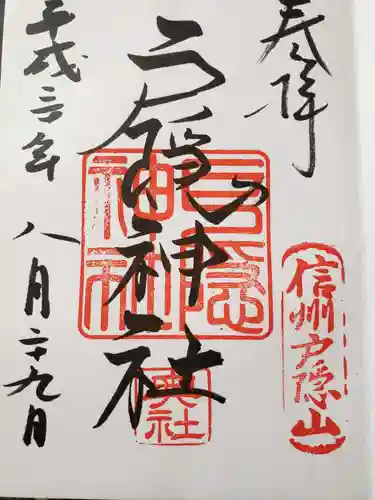 奉拝
信州戸隠山
戸隠神社
戸隠神社
奥社
平成三〇年
八月二十九日